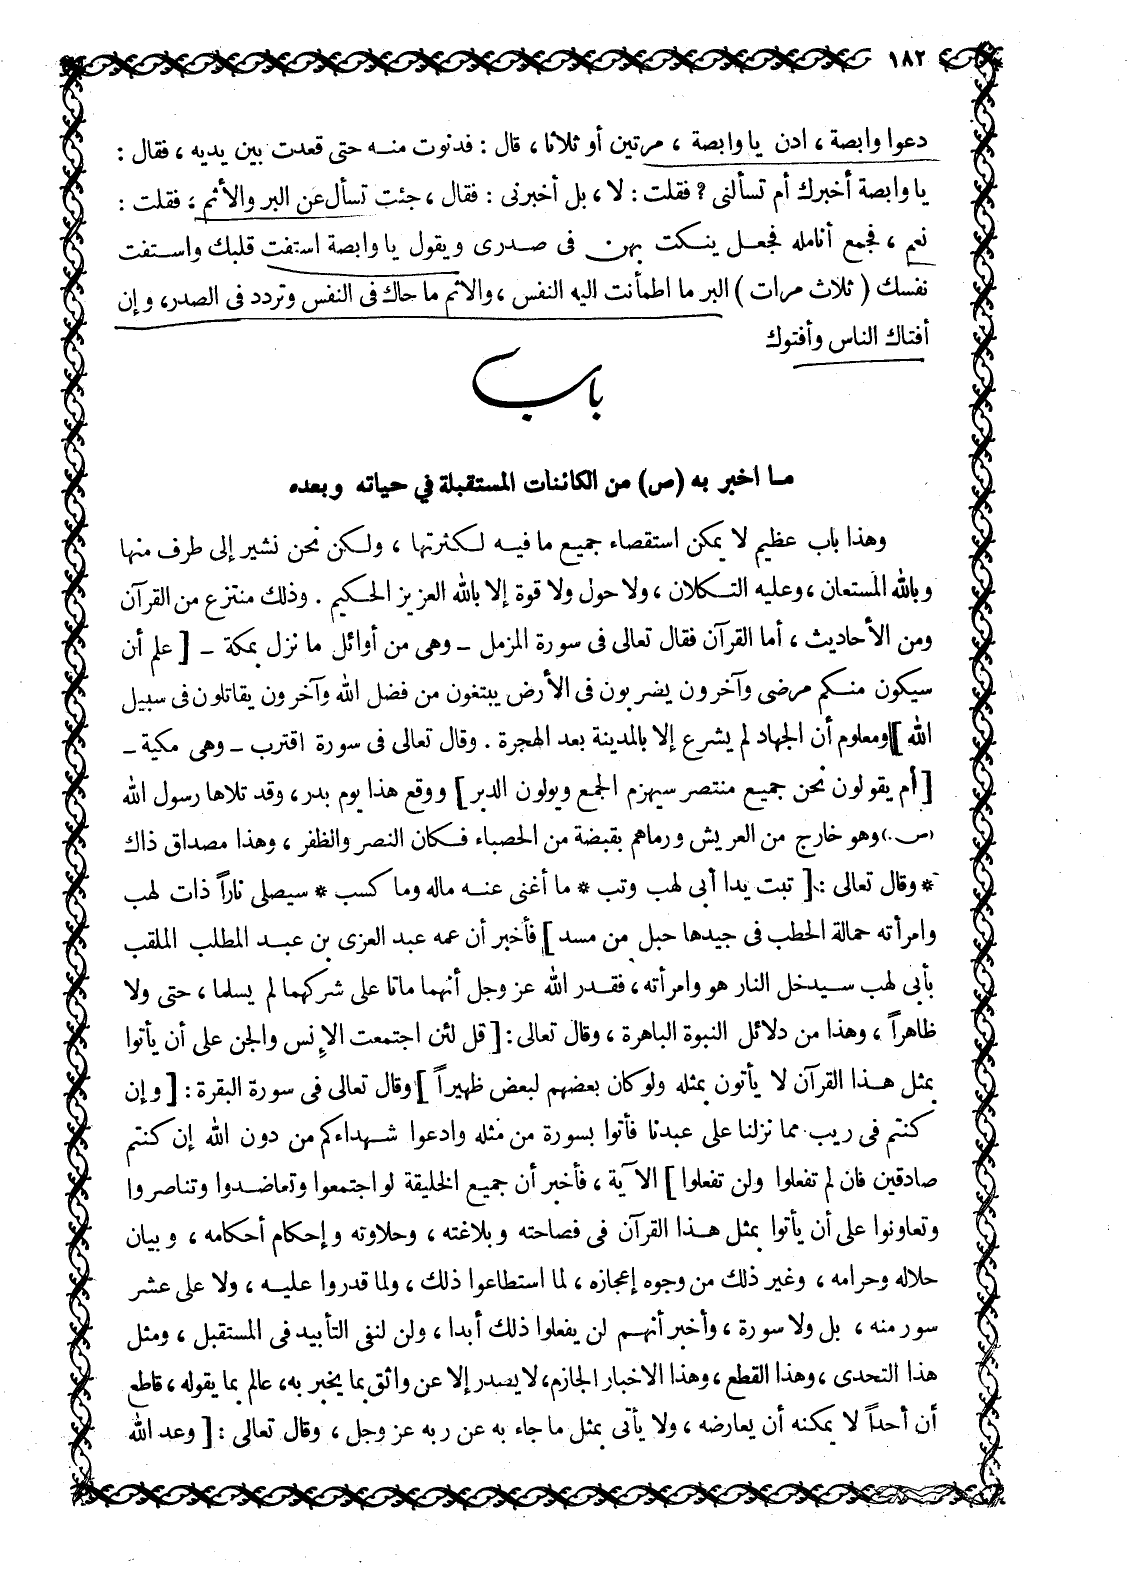 ١٨٢
دعوا وابصة ، ادن يا وابصة ، مرتين أو ثلاثا ، قال : فدنوت منه حتى قعدت بين يديه ، فقال :
يا وابصة أخبرك أم تسألنى ? فقلت : لا ، بل أخبرنى : فقال ، جئت تسأل عن البر والأثم ، فقلت :
نعم ، فجمع أنامله فجعل ينكت بهن فى صدرى ويقول يا وابصة استفت قلبك واستفت
نفسك ( ثلاث مرات ) البر ما اطمأنت اليه النفس ، والاثم ما حاك فى النفس وتردد فى الصدر ، وإن
أفتاك الناس وأفتوك
باب
ما اخبر به (ص) من الكائنات المستقبلة في حياته وبعده
وهذا باب عظيم لا يمكن استقصاء جميع ما فيه لكثرتها ، ولكن نحن نشير إلى طرف منها
وبالله المستعان ، وعليه التكلان ، ولا حول ولا قوة إلا بالله العزيز الحكيم . وذلك منتزع من القرآن
ومن الأحاديث ، أما القرآن فقال تعالى فى سورة المزمل - وهى من أوائل ما نزل بمكة - [ علم أن
سيكون منكم مرضى وآخرون يضربون فى الأرض يبتغون من فضل الله وآخرون يقاتلون فى سبيل
الله ] ومعلوم أن الجهاد لم يشرع إلا بالمدينة بعد الهجرة . وقال تعالى فى سورة اقترب - وهى مكية -
[ أم يقولون نحن جميع منتصر سيهزم الجمع ويولون الدبر ] ووقع هذا يوم بدر ، وقد تلاها رسول الله
(ص.) وهو خارج من العريش ورماهم بقبضة من الحصباء فكان النصر والظفر ، وهذا مصداق ذاك
* وقال تعالى : [ تبت يدا أبى لهب وتب * ما أغنى عنه ماله وما كسب * سيصلى ناراً ذات لهب
وامرأته حمالة الحطب فى جيدها حبل من مسد ] فأخبر أن عمه عبد العزى بن عبد المطلب الملقب
بأبى لهب سيدخل النار هو وامرأته ، فقدر الله عز وجل أنهما ماتا على شركهما لم يسلما ، حتى ولا
ظاهراً ، وهذا من دلائل النبوة الباهرة ، وقال تعالى : [ قل لئن اجتمعت الإنس والجن على أن يأتوا
بمثل هذا القرآن لا يأتون بمثله ولو كان بعضهم لبعض ظهيراً ] وقال تعالى فى سورة البقرة : [ وإن
كنتم فى ريب مما نزلنا على عبدنا فأتوا بسورة من مثله وادعوا شهداءكم من دون الله إن كنتم
صادقين فان لم تفعلوا ولن تفعلوا ] الآية ، فأخبر أن جميع الخليقة لو اجتمعوا وتعاضدوا وتناصروا
وتعاونوا على أن يأتوا بمثل هذا القرآن فى فصاحته وبلاغته ، وحلاوته وإحكام أحكامه ، وبيان
حلاله وحرامه ، وغير ذلك من وجوه إعجازه ، لما استطاعوا ذلك ، ولما قدروا عليه ، ولا على عشر
سور منه ، بل ولا سورة ، وأخبر أنهم لن يفعلوا ذلك أبدا ، ولن لنفى التأبيد فى المستقبل ، ومثل
هذا التحدى ، وهذا القطع ، وهذا الاخبار الجازم ، لا يصدر إلا عن واثق بما يخبر به ، عالم بما يقوله ، قاطع
أن أحداً لا يمكنه أن يعارضه ، ولا يأتى بمثل ما جاء به عن ربه عز وجل ، وقال تعالى : [ وعد الله